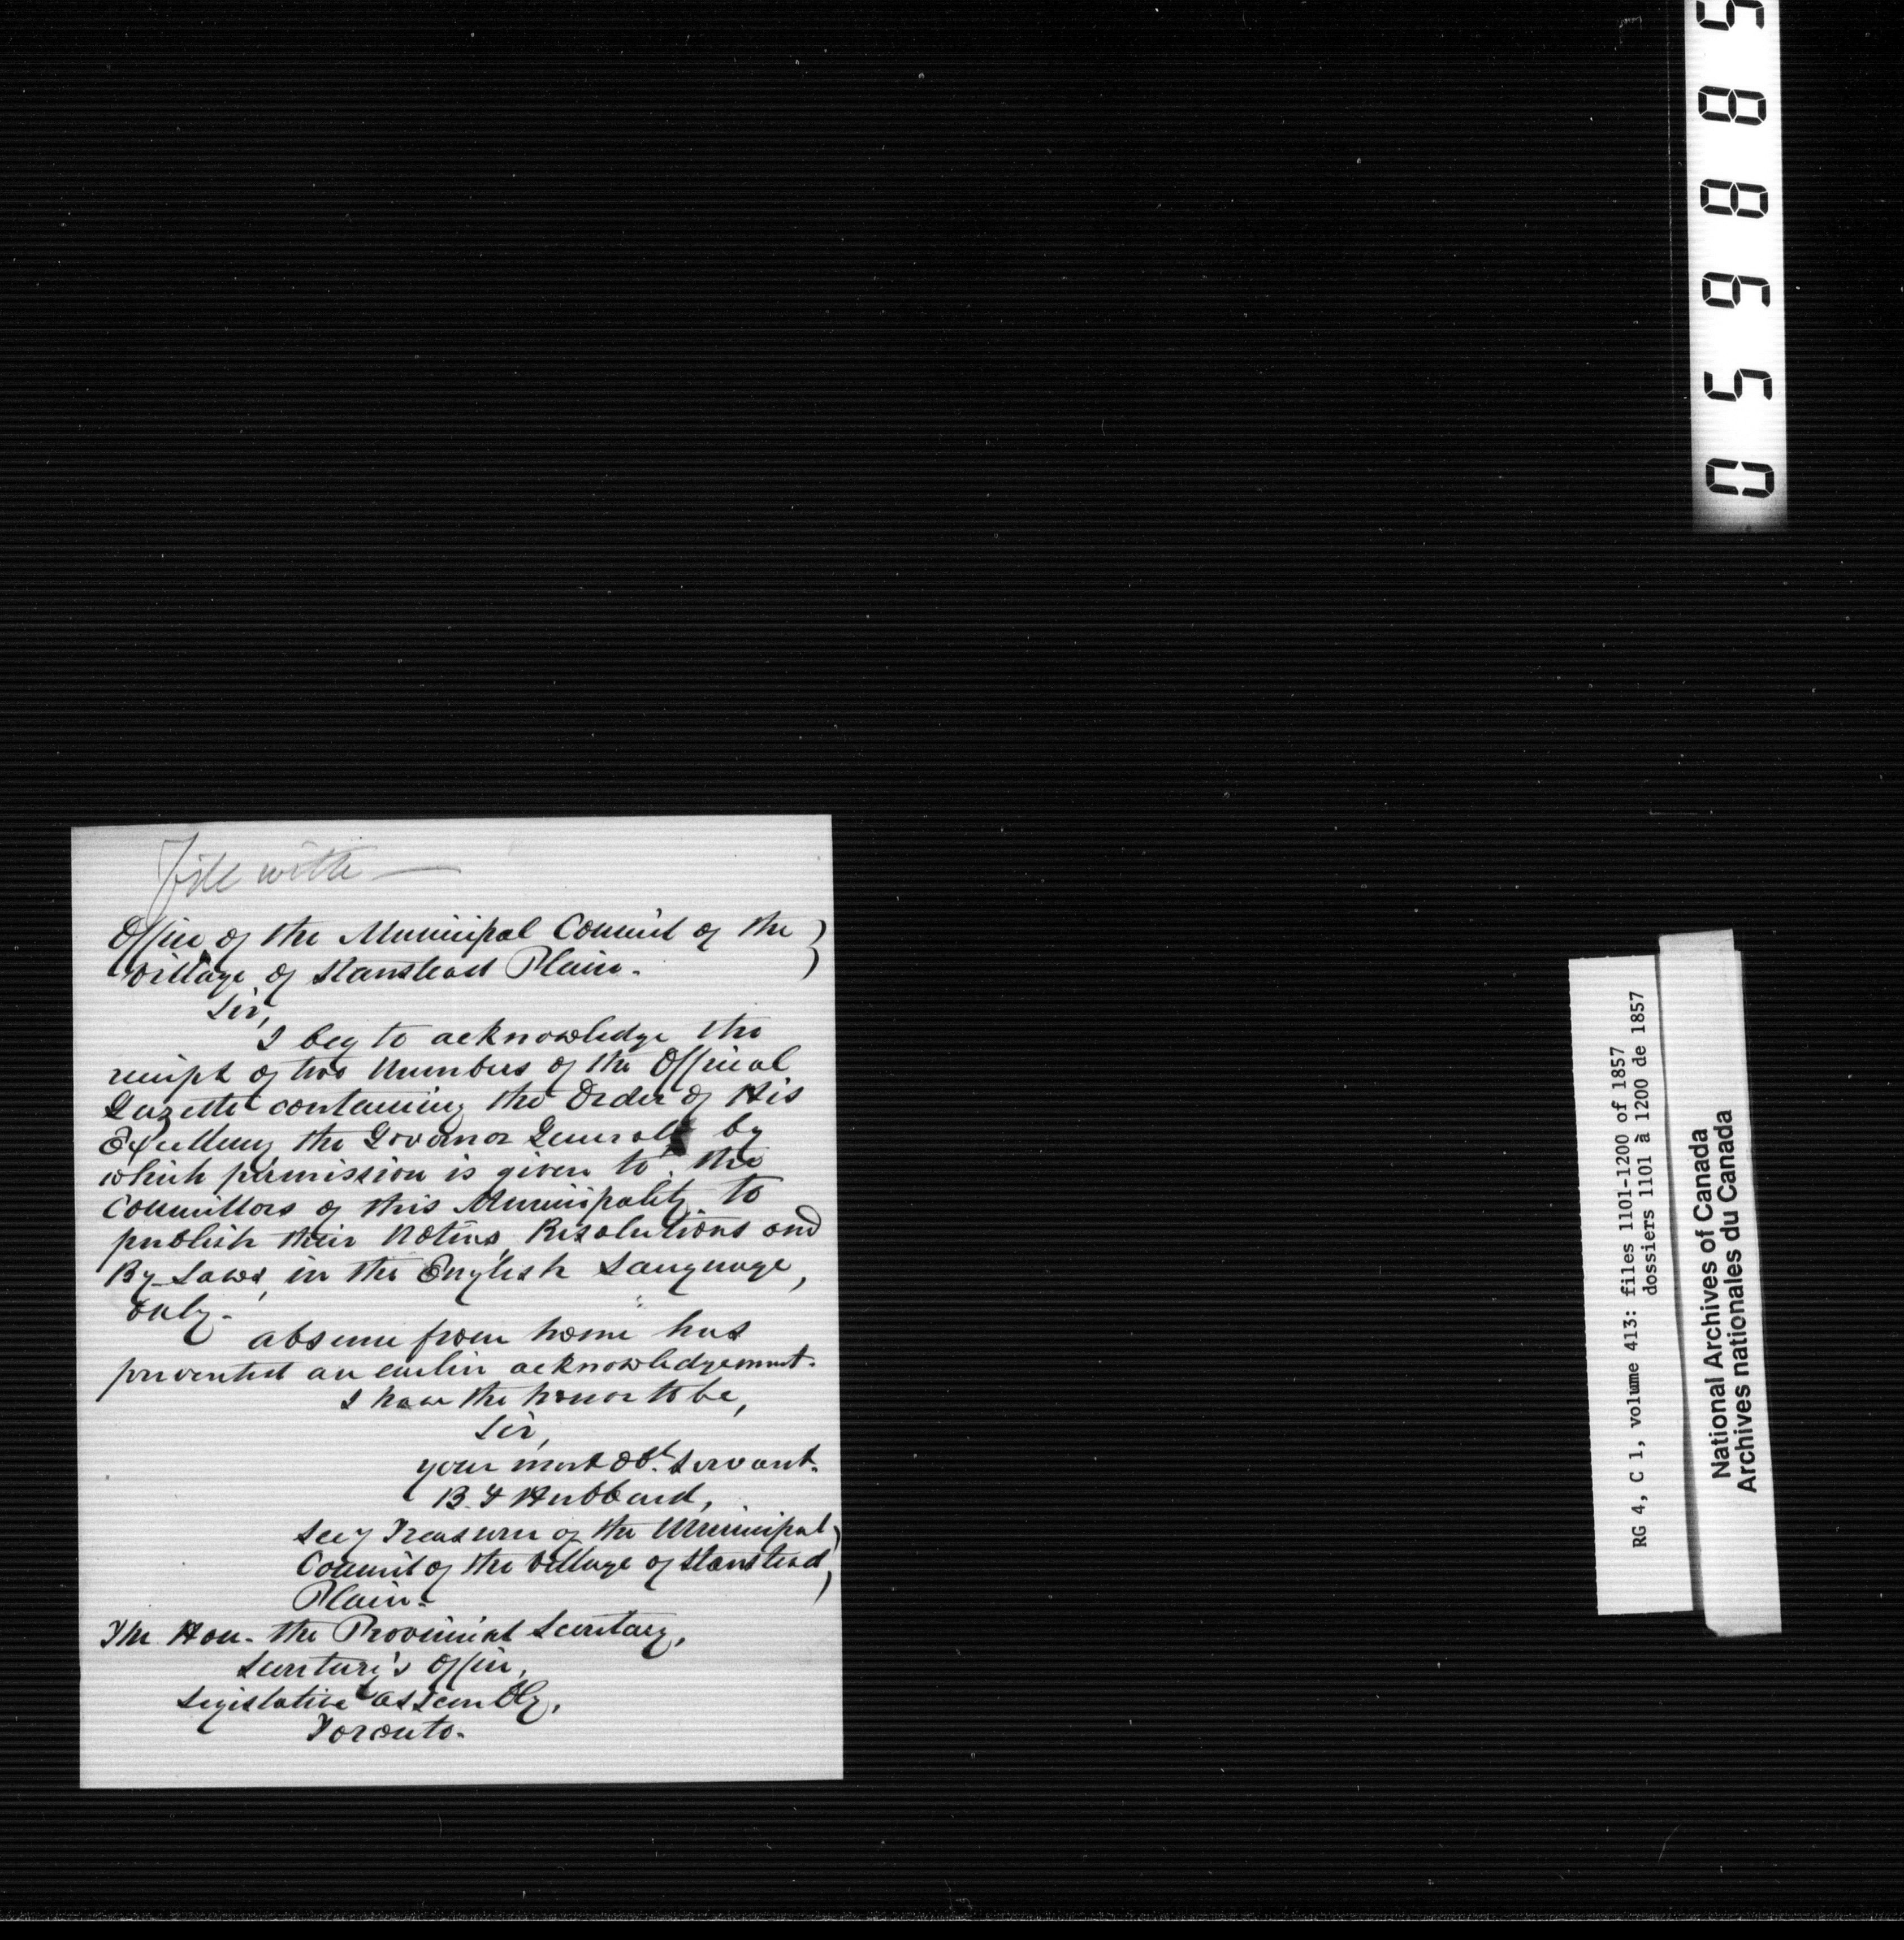 File with —
Office of the Municipal Council of the
Village of Stanstead Plain.
Sir,
I beg to acknowledge the
receipt of two Numbers of the Official
Gazette containing the Order of His
Excellency the Governor General by
which permission is given to the
Councillors of this Municipality to
publish their Notices, Resolutions and
By-Laws, in the English Language,
only.
absence from home has
prevented an earlier acknowledgement.
I have the honor to be,
Sir,
your most Obt. Servant.
B. F Hubbard,
Secy Treasurer of the Municipal
Council of the Village of Stanstead
Plain.
The Hon. the Provincial Secretary,
Secretary's Office,
Legislative Assembly,
Toronto.
059885
RG 4, C 1, volume 413: files 1101-1200 of 1857
dossiers 1101 à 1200 de 1857
National Archives of Canada
Archives nationales du Canada